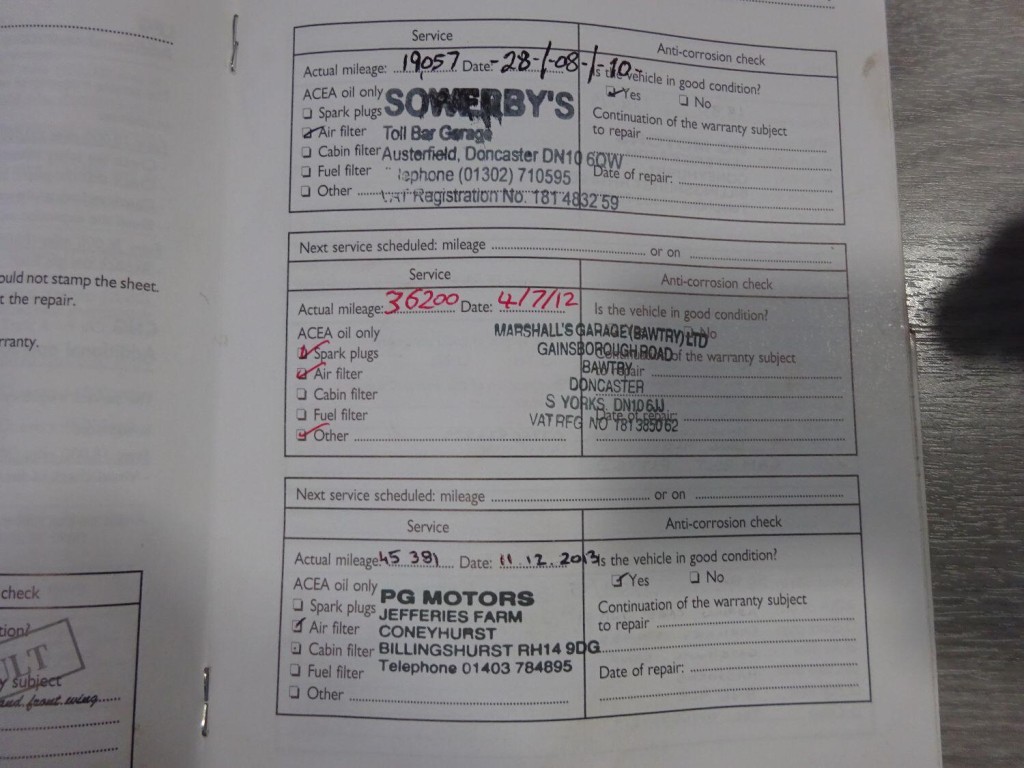 Service
Anti-corrosion check
Actual mileage: 19057 Date: -28-/-08-/-10-
Is the vehicle in good condition?
Yes No
ACEA oil only
SOWERBY'S
Spark plugs
Continuation of the warranty subject
to repair
Air filter
Toll Bar Garage
Cabin filter
Austerfield, Doncaster DN10 6QW
Fuel filter
lephone (01302) 710595
Date of repair:
Other
VAT Registration No. 181 4832 59
Next service scheduled: mileage or on
Service
Anti-corrosion check
Actual mileage: 36200 Date: 4/7/12
Is the vehicle in good condition?
ACEA oil only
MARSHALL'S GARAGE (BAWTRY) LTD
No
Spark plugs
GAINSBOROUGH ROAD
Continuation of the warranty subject
to repair
Air filter
BAWTRY
Cabin filter
DONCASTER
S YORKS. DN10 6JJ
Fuel filter
Date of repair:
VAT REG NO 181 3850 62
Other
Next service scheduled: mileage or on
Service
Anti-corrosion check
Actual mileage: 45 381 Date: 11.12.2013
Is the vehicle in good condition?
Yes No
ACEA oil only
PG MOTORS
Spark plugs
JEFFERIES FARM
Continuation of the warranty subject
to repair
Air filter
CONEYHURST
Cabin filter
BILLINGSHURST RH14 9DG
Fuel filter
Telephone 01403 784895
Date of repair:
Other
ould not stamp the sheet.
t the repair.
rranty.
check
tion?
ULT
y subject
and front wing